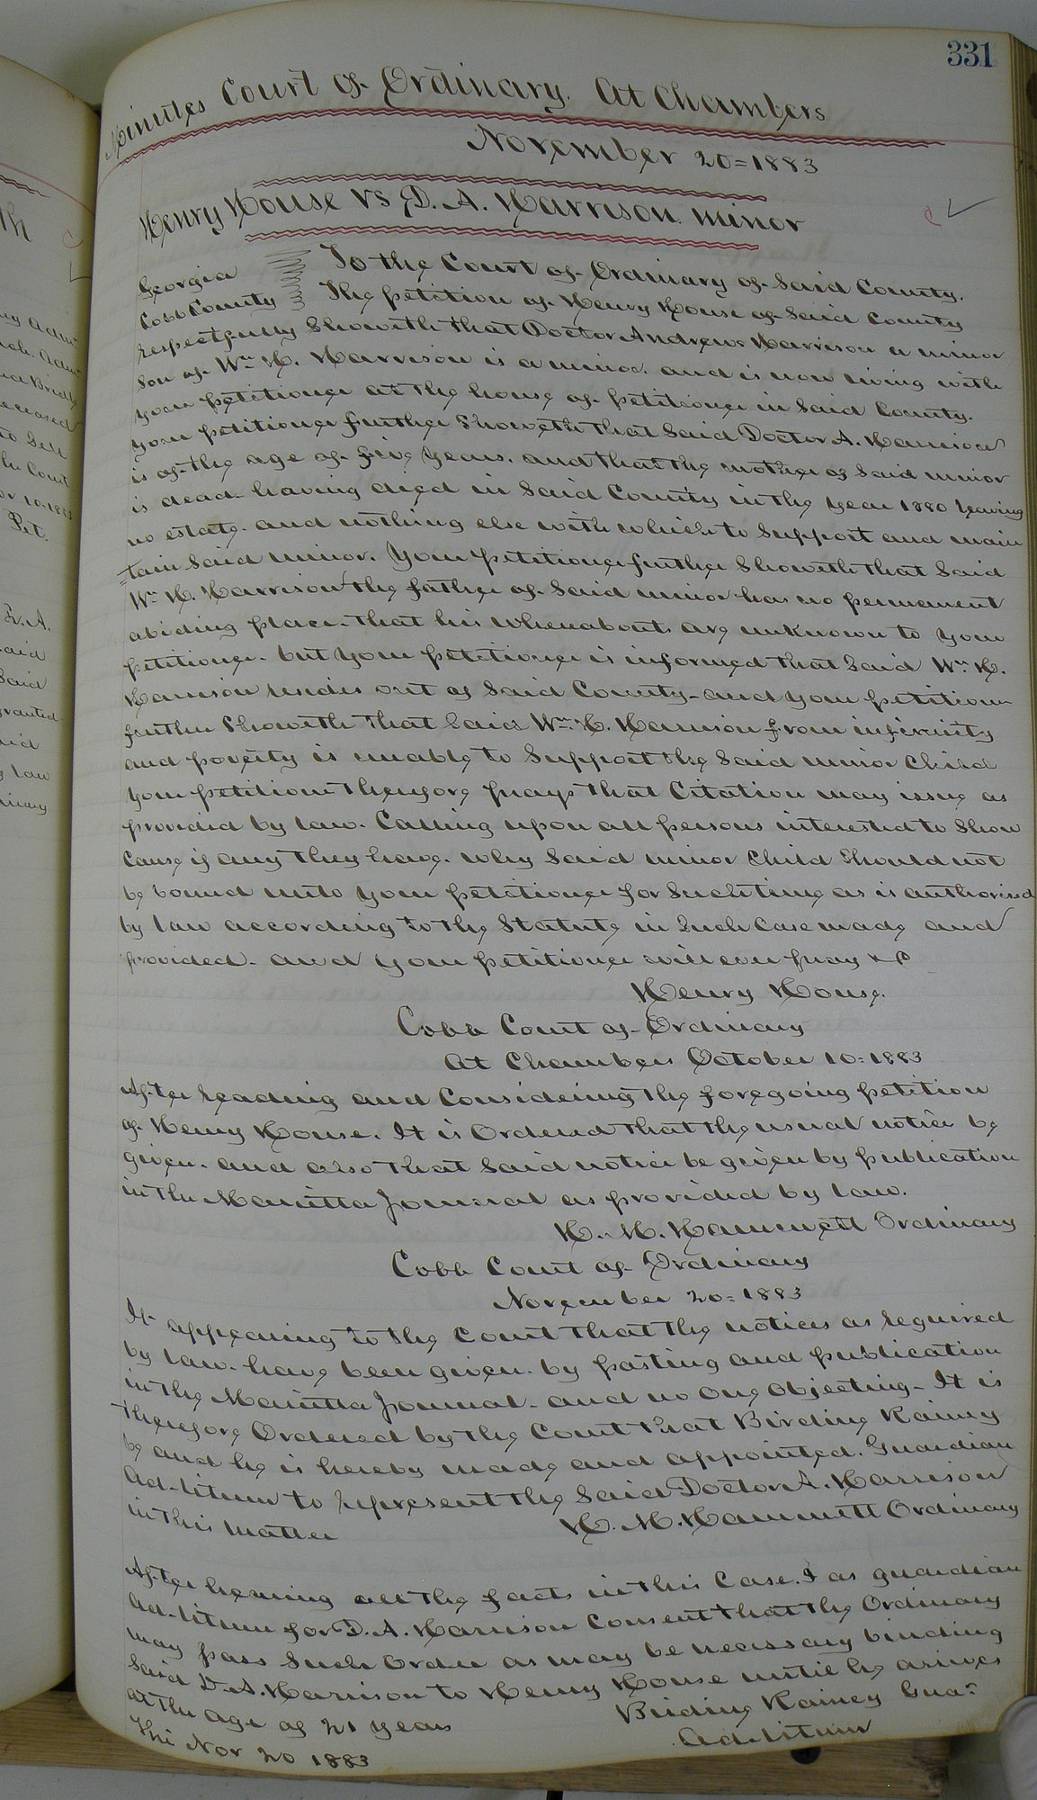 331
Minutes Court of Ordinary. At Chambers
November 20=1883
Henry House vs D. A. Harrison minor
Georgia
Cobb County
To the Court of Ordinary of Said County.
The petition of Henry House of Said County
respectfully Showeth that Doctor Andrew Harrison a minor
Son of Wm H. Harrison is a minor. and is now living with
your petitioner at the house of petitioner in Said County.
your petitioner further Showeth that Said Doctor A. Harrison
is of the age of five years. and that the mother of Said minor
is dead- having died in Said County in the year 1880 leaving
no estate. and nothing else with which to Support and main
=tain Said minor. Your petitioner further Showeth that Said
Wm H. Harrison the father of Said minor has no permanent
abiding place. that his whereabouts are unknown to your
petitioner. but your petitioner is informed that Said Wm H.
Harrison resides out of Said County- and your petitioner
further Showeth that Said Wm H. Harrison from infirmity
and poverty is unable to Support the Said minor Child
Your petitioner therefore prays that Citation may issue as
provided by law. Calling upon all persons interested to Show
Cause if any they have. why Said minor Child Should not
be bound unto your petitioner for Such time as is authorized
by law according to the Statute in Such Case made and
provided. and your petitioner will ever pray &c
Henry House.
Cobb Court of Ordinary
At Chambers October 10=1883
After reading and Considering the foregoing petition
of Henry House. It is Ordered that the usual notice be
given. and also that Said notice be given by publication
in the Marietta Journal as provided by law.
H. M. Hammett Ordinary
Cobb Court of Ordinary
November 20=1883
It appearing to the Court that the notices as required
by law. have been given. by posting and publication
in the Marietta Journal. and no one objecting- It is
therefore Ordered by the Court that Birdine Rainey
be and he is hereby made and appointed. Guardian
Ad-litum to represent the Said Doctor A. Harrison
in this matter
H. M. Hammett Ordinary
After hearing all the facts in this Case. I as guardian
Ad-litum for D. A. Harrison Consent that the Ordinary
may pass Such Order as may be necessary binding
Said D. A. Harrison to Henry House until he arives
at the age of 21 years
Birding Rainey Gua.
Ad-litum
This Nov 20 1883